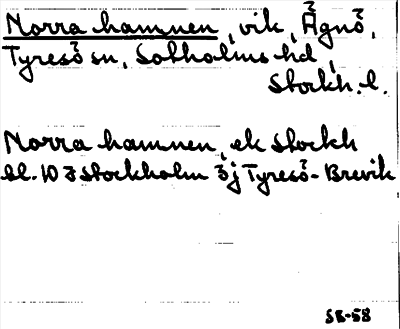 Norra hamnen, vik, Ägnö,
Tyresö sn, Sotholms hd,
Stockh. l.
Norra hamnen, ek Stockh
bl. 10 J Stockholm öj Tyresö-Brevik
SK-58